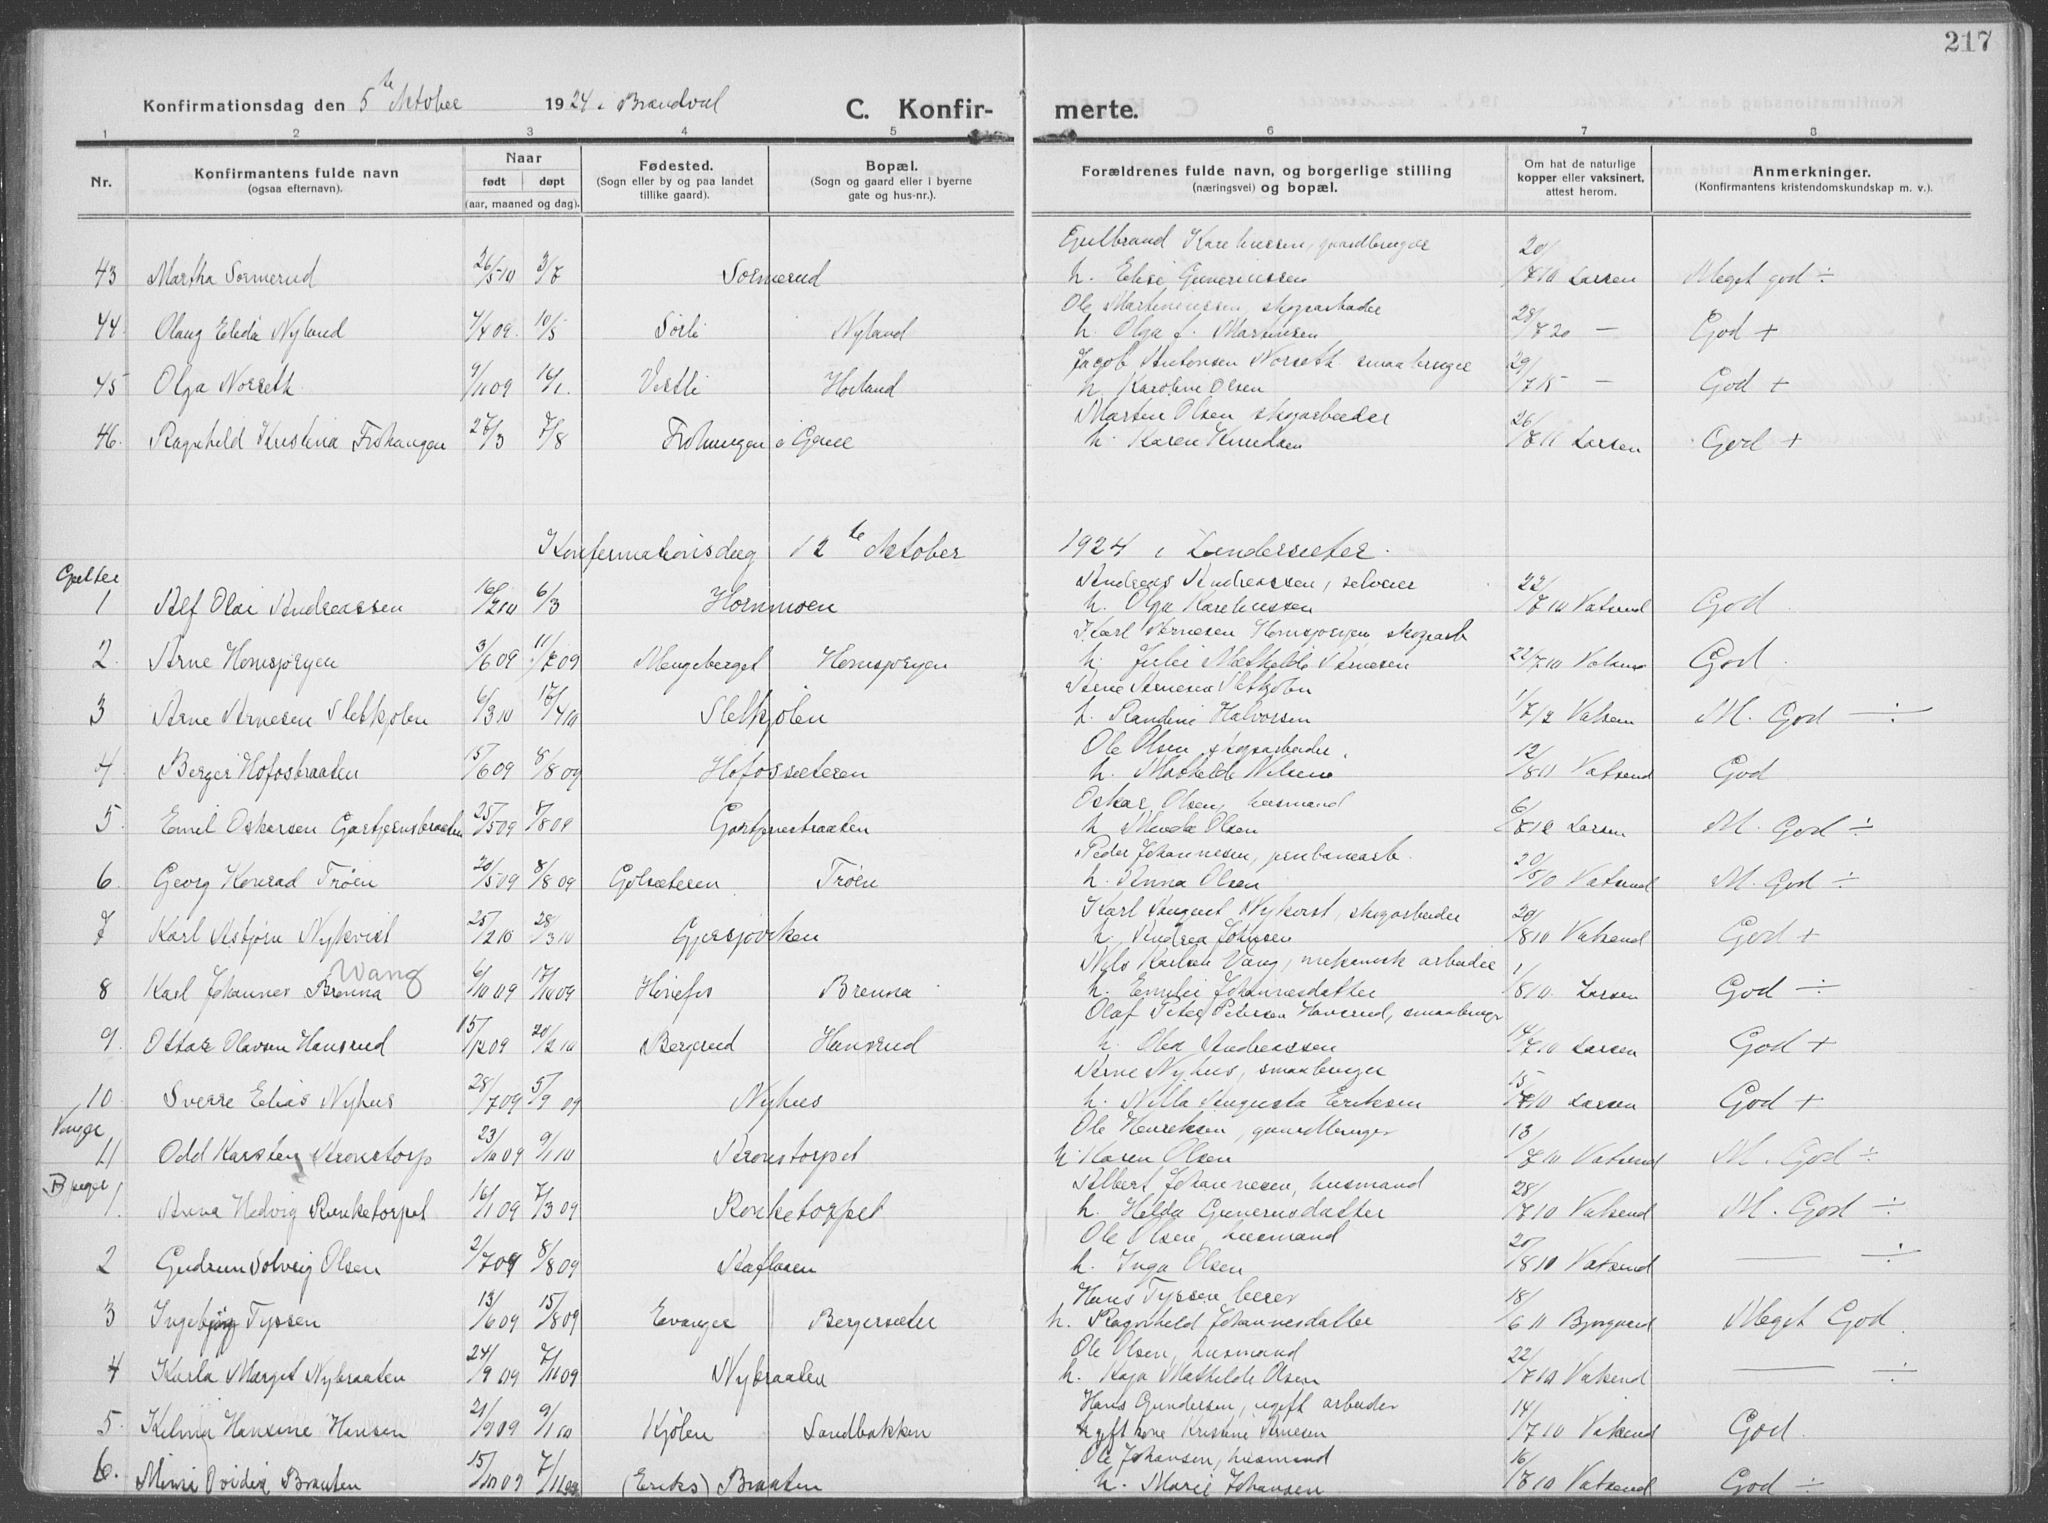 217
Konfirmationsdag den 5te Oktober 1924 i Brandval
C. Konfirmerte.
1 2 3 4 5 6 7 8
Nr.
Konfirmantens fulde navn
(ogsaa efternavn).
Naar
født døpt
(aar, maaned og dag).
Fødested.
(Sogn eller by og paa landet
tillike gaard).
Bopæl.
(Sogn og gaard eller i byerne
gate og hus-nr.).
Forældrenes fulde navn, og borgerlige stilling
(næringsvei) og bopæl.
Om hat de naturlige
kopper eller vaksinert,
attest herom.
Anmerkninger.
(Konfirmantens kristendomskundskap m. v.).
Gulbrand Karelinssen, gaardbruger
43 Martha Sormerud 26/5 10 3/7 Sormerud h. Elise Gunerinssen 20/7 10 Larsen Meget god ÷
Ole Martinenssen, skogarbeider
44. Olaug Elida Nyland 7/4 09. 10/5 Sørli Nyland h. Olga f. Martinsen 28/7 20 — God +
Jacob Antonsen Norseth smaabruger
45 Olga Norseth 9/11 09 14/1. Vestli Hovland h. Karoline Olsen 29/7 15 — God +
Marten Olsen skogarbeider
46. Ragnhild Kristina Fiskaugen 27/3 7/8 h. Karen Knudsen 26/7 11 Larsen God +
Konfirmationsdag 12te Oktober 1924 i Lundersæter.
Gutter
Andreas Andreassen, selveier
1 Alf Olai Andreassen 16/2 10 6/3 Hornmoen h. Olga Karelinssen 22/7 10 Vatsend God.
Karl Arnesen Homsjøryen skogarb
2. Arne Homsjøryen 3/6 09 11/7 09 Mengeberget Homsjøryen h. Julie Mathilde Arnesen 22/7 10 Vatsend God.
Arne Arnesen Sletkjølen
3 Arne Arnesen Sletkjølen 6/3 10 17/4 10 Sletkjølen h. Randine Halvorsen 1/7 12 Vatsen M. God ÷
Ole Olsen, skogsarbeider.
4 Berger Hofosbraaten 15/6 09 8/8 09 Hofossæteren h. Mathilde Nilsine 12/8 11 Vatsend God
Oskar Olsen, husmand
5. Emil Oskarsen Gartjernsbraaten 25/5 09 8/8 09 Gartjernsbraaten h. Olsen 6/8 12 Larsen M. God ÷
Peder Johannesen, jernbanearb.
6. Georg Konrad Trøen 20/5 09 8/8 09 Gølsæteren Trøen h. Anna Olsen 20/8 10 Vatsend M. God ÷
Karl August Nykvist, skogarbeider
7 Karl Asbjørn Nykvist 25/2 10 28/3 10 Gjersjøviken h. Andrea Johnsen 20/8 10 Vatsend God +
Nils Karlsen Vang, mekanisk arbeider
Wang
8 Karl Johannes Brenna 6/10 09 17/10 09 Hønefos Brenna h. Emilie Johannesdatter 1/8 10. Larsen God ÷
Olaf Peter Petersen Hansrud, smaabruger
9. Ottar Olavsen Hansrud 15/12 09 20/2 10 Bergerud Hansrud h. Olea Andreassen 14/7 10 Larsen God +
Arne Nyhus, smaabruger
10. Sverre Elias Nyhus 28/7 09 5/9 09 Nyhus h. Nilla Augusta Eriksen 15/7 10 Larsen God +
Ole Henriksen, gaardbruger
11 Odd Karsten Aronstorp 23/10 09 9/1 10 Aronstorpet h. Karen Olsen 13/7 10 Vatsend M. God ÷
Piger
Albert Johannesen, husmand
1. Anna Hedvig Rønketorpet 16/1 09 7/3 09 Rønketorpet h. Helda Gunerusdatter 28/7 10 Vatsend M. God ÷
Ole Olsen, husmand
2 Gudrun Solveig Olsen 2/7 09 8/8 09 Kaflasen h. Inga Olsen 20/8 10 Vatsend — ÷
Hans Tyssen lærer
3 Ingebjørg Tyssen 13/6 09 15/8 09 Evanger Bergersæter h. Ragnhild Johannesdatter 18/6 11 Bjørgaard Meget God
Ole Olsen, husmand
4 Karla Margit Nybraaten 24/9 09 7/11 09 Nybraaten h. Kaja Mathilde Olsen 22/7 10 Vatsend — ÷
Hans Gundersen, ugift arbeider
5. Hansine Hansen 21/9 09 9/1 10 Kjølen Sandbakken Ugift kone Kristine Arnesen 14/7 10 Vatsend God.
Ole Johansen, husmand
6. Mimi Ovidia Braaten 15/10 09 7/11 09 (Eriks) Braaten h. Marie Johansen 16/7 10 Vatsend God ÷